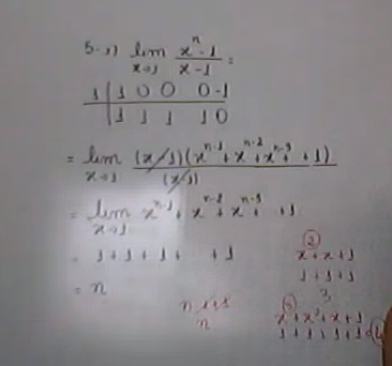 5-1) lim x→1 (xⁿ - 1)/(x - 1) =
1 | 1 0 0 0 -1
1 1 1 1 0
= lim x→1 (x-1)(xⁿ⁻¹ + xⁿ⁻² + xⁿ⁻³ + + 1)/(x-1)
= lim x→1 xⁿ⁻¹ + xⁿ⁻² + xⁿ⁻³ + + 1
= 1 + 1 + 1 + + 1
= n
2
x + x + 1
1 + 1 + 1
3
n-1+1
n
x³ + x² + x + 1
1 + 1 + 1 + 1 = 4